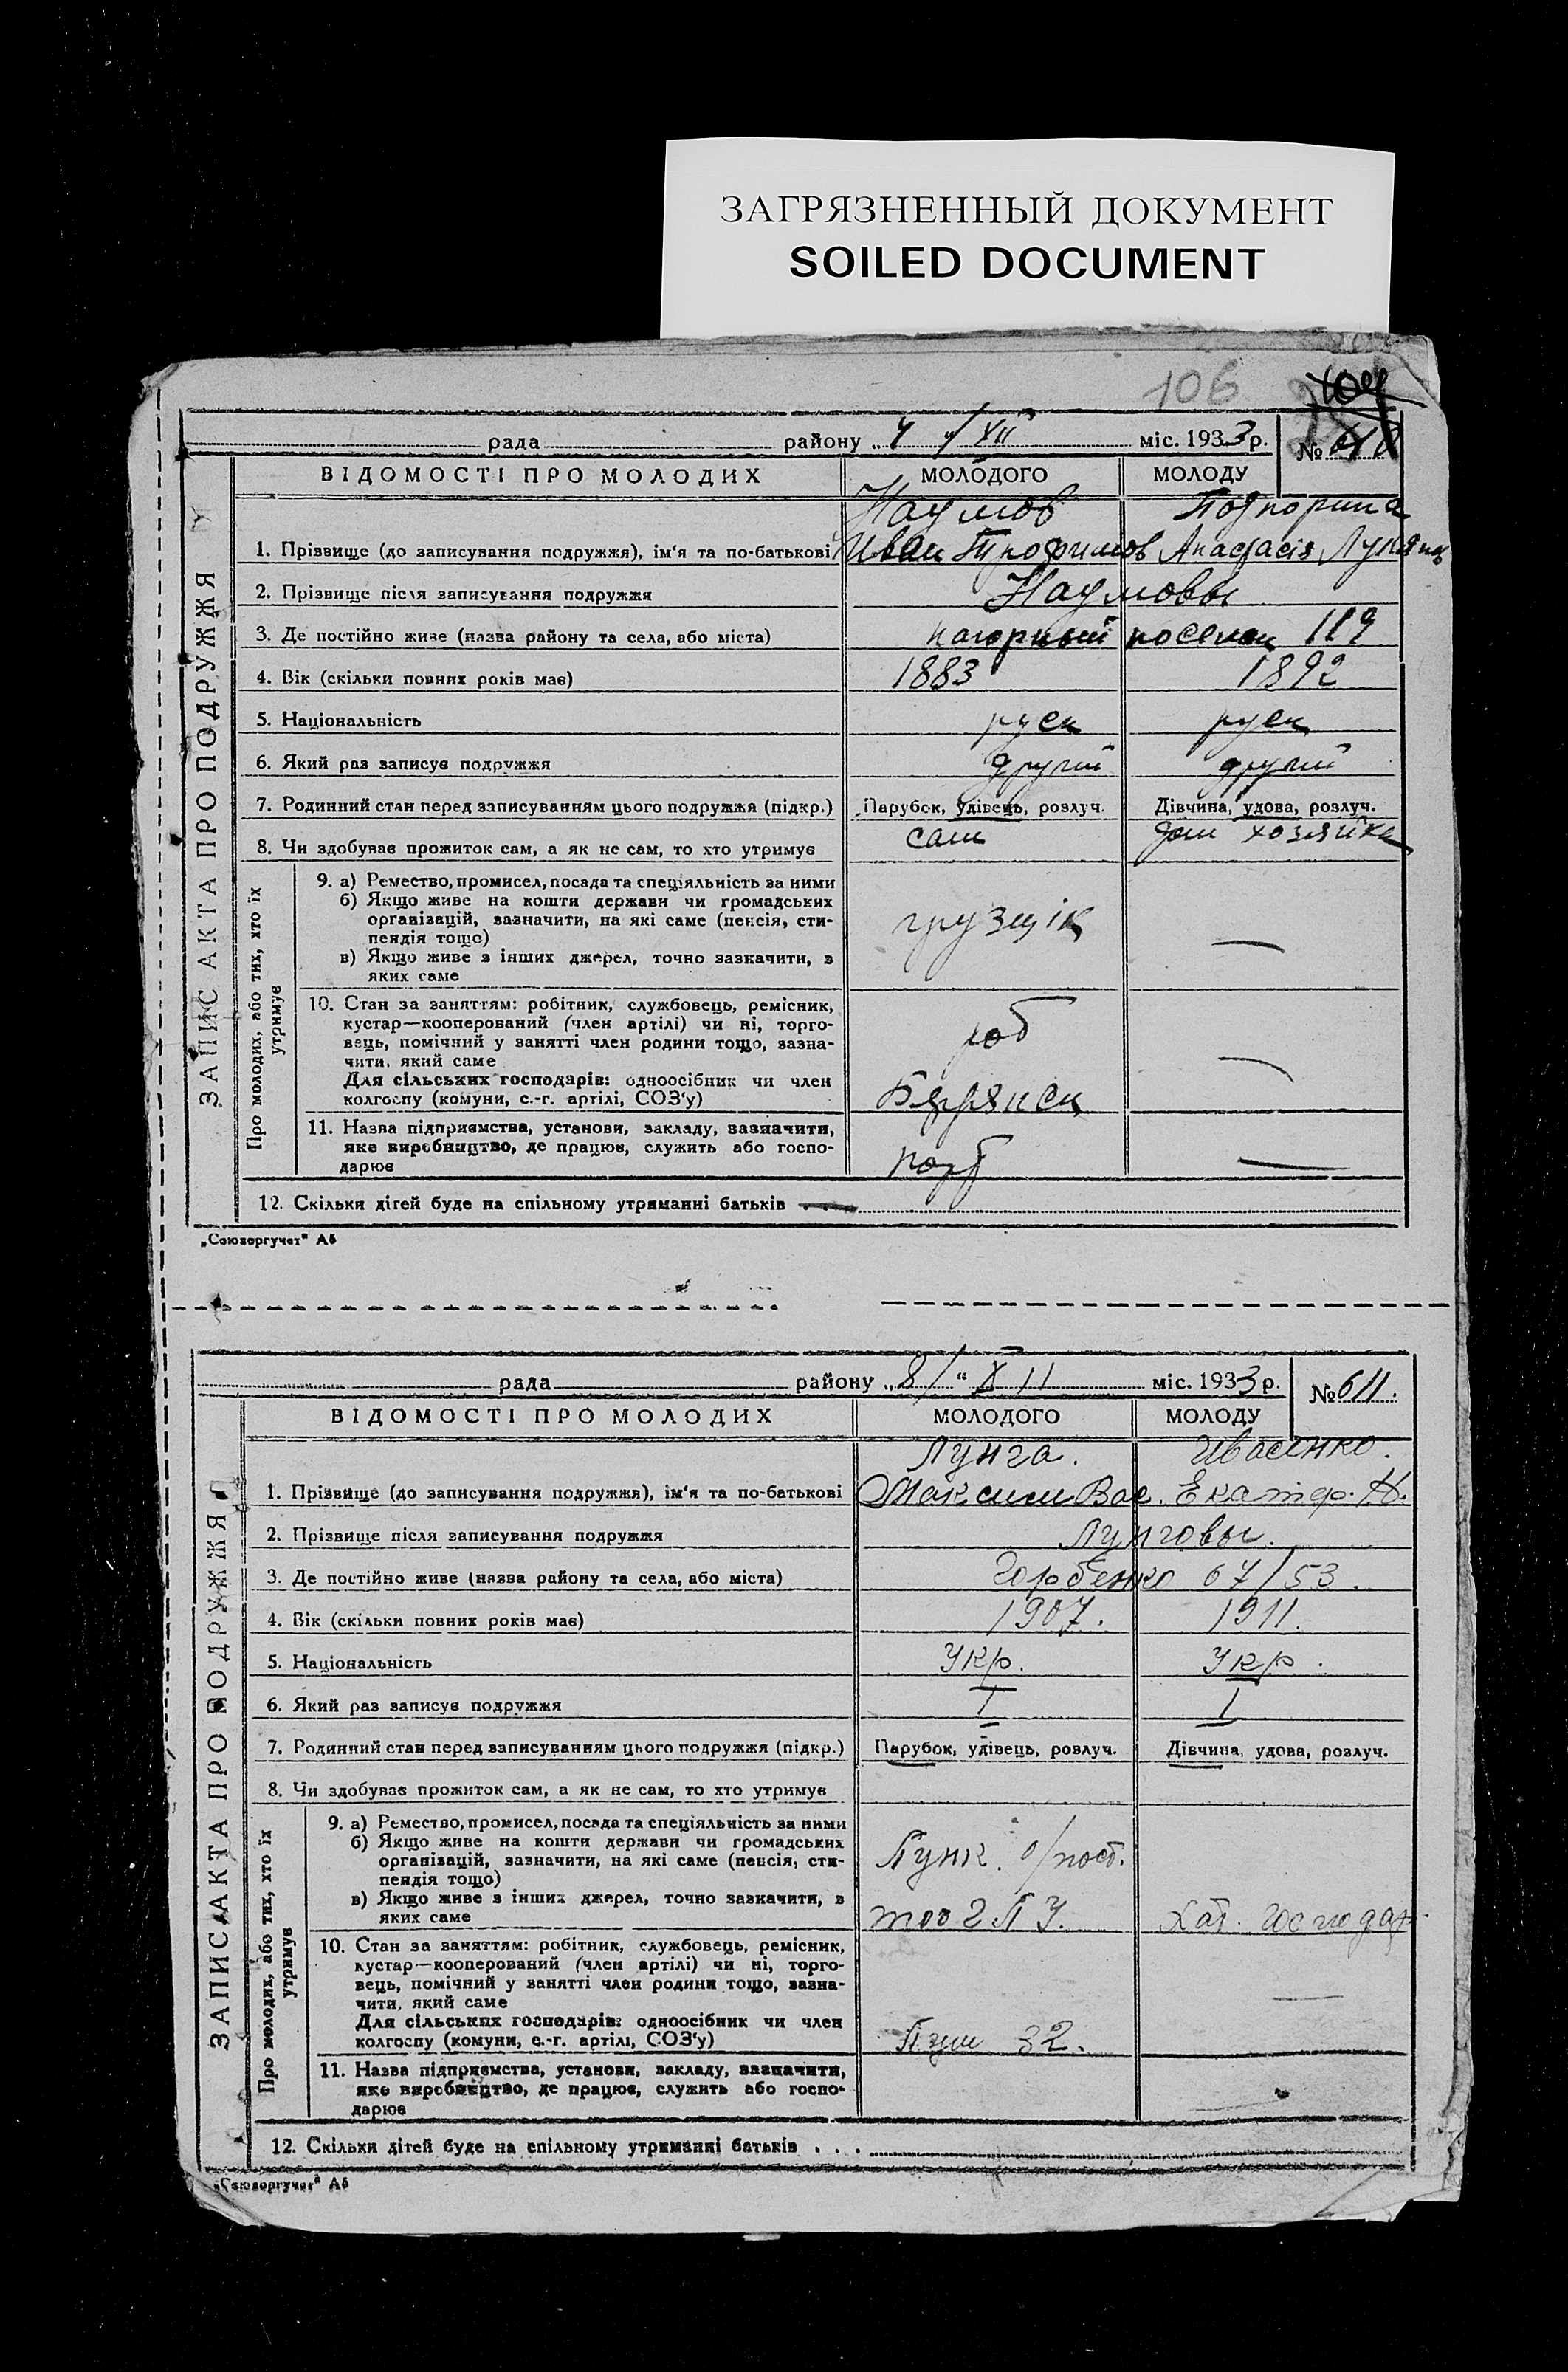 ЗАГРЯЗНЕННЫЙ ДОКУМЕНТ
SOILED DOCUMENT
106
рада району „ 4 “ XII міс. 1933 р.
№
ЗАПИС АКТА ПРО ПОДРУЖЖЯ
ВІДОМОСТІ ПРО МОЛОДИХ МОЛОДОГО МОЛОДУ
Наумов Подпорина
1. Прізвище (до записування подружжя), ім‘я та по-батькові Иван Трофимов Анастасія
2. Прізвище після записування подружжя Наумовы
3. Де постійно живе (назва району та села, або міста) нагорный поселок 119
4. Вік (скільки повних років має) 1883 1892
5. Національність руск руск
6. Який раз записує подружжя другий другий
7. Родинний стан перед записуванням цього подружжя (підкр.) Парубок, удівець, розлуч. Дівчина, удова, розлуч.
8. Чи здобуває прожиток сам, а як не сам, то хто утримує сам дом хозяйка
Про молодих, або тих, хто їх утримує
9. а) Ремество, промисел, посада та спеціяльність за ними
б) Якщо живе на кошти держави чи громадських
організацій, зазначити, на які саме (пенсія, сти-
пендія тощо) грузщік —
в) Якщо живе з інших джерел, точно зазкачити, з
яких саме
10. Стан за заняттям: робітник, службовець, ремісник,
кустар—кооперований (член артілі) чи ні, торго-
вець, помічний у занятті член родини тощо, зазна- роб
чити, який саме —
Для сільських господарів: одноосібник чи член
колгоспу (комуни, с.-г. артілі, СОЗ‘у) Бярянск
11. Назва підприємства, установи, закладу, зазначити,
яке виробництво, де працює, служить або госпо-
дарює порт —
12. Скільки дітей буде на спільному утриманні батьків —
„Союзоргучет“ А5
рада району „ 8 “ XII міс. 1933 р.
№ 611.
ЗАПИС АКТА ПРО ПОДРУЖЖЯ
ВІДОМОСТІ ПРО МОЛОДИХ МОЛОДОГО МОЛОДУ
Лунга. Ивасенко.
1. Прізвище (до записування подружжя), ім‘я та по-батькові Максим Вас. Екатер. Н.
2. Прізвище після записування подружжя Лунговы.
3. Де постійно живе (назва району та села, або міста) Горбенко 67/53.
4. Вік (скільки повних років має) 1907. 1911.
5. Національність Укр. Укр.
6. Який раз записує подружжя I I
7. Родинний стан перед записуванням цього подружжя (підкр.) Парубок, удівець, розлуч. Дівчина, удова, розлуч.
8. Чи здобуває прожиток сам, а як не сам, то хто утримує
Про молодих, або тих, хто їх утримує
9. а) Ремество, промисел, посада та спеціяльність за ними
б) Якщо живе на кошти держави чи громадських
організацій, зазначити, на які саме (пенсія, сти-
пендія тощо)
в) Якщо живе з інших джерел, точно зазкачити, з
яких саме Хат. господар.
10. Стан за заняттям: робітник, службовець, ремісник,
кустар—кооперований (член артілі) чи ні, торго-
вець, помічний у занятті член родини тощо, зазна-
чити, який саме —
Для сільських господарів: одноосібник чи член
колгоспу (комуни, с.-г. артілі, СОЗ‘у) 32.
11. Назва підприємства, установи, закладу, зазначити,
яке виробництво, де працює, служить або госпо-
дарює
12. Скільки дітей буде на спільному утриманні батьків . . .
„Союзоргучет“ А5